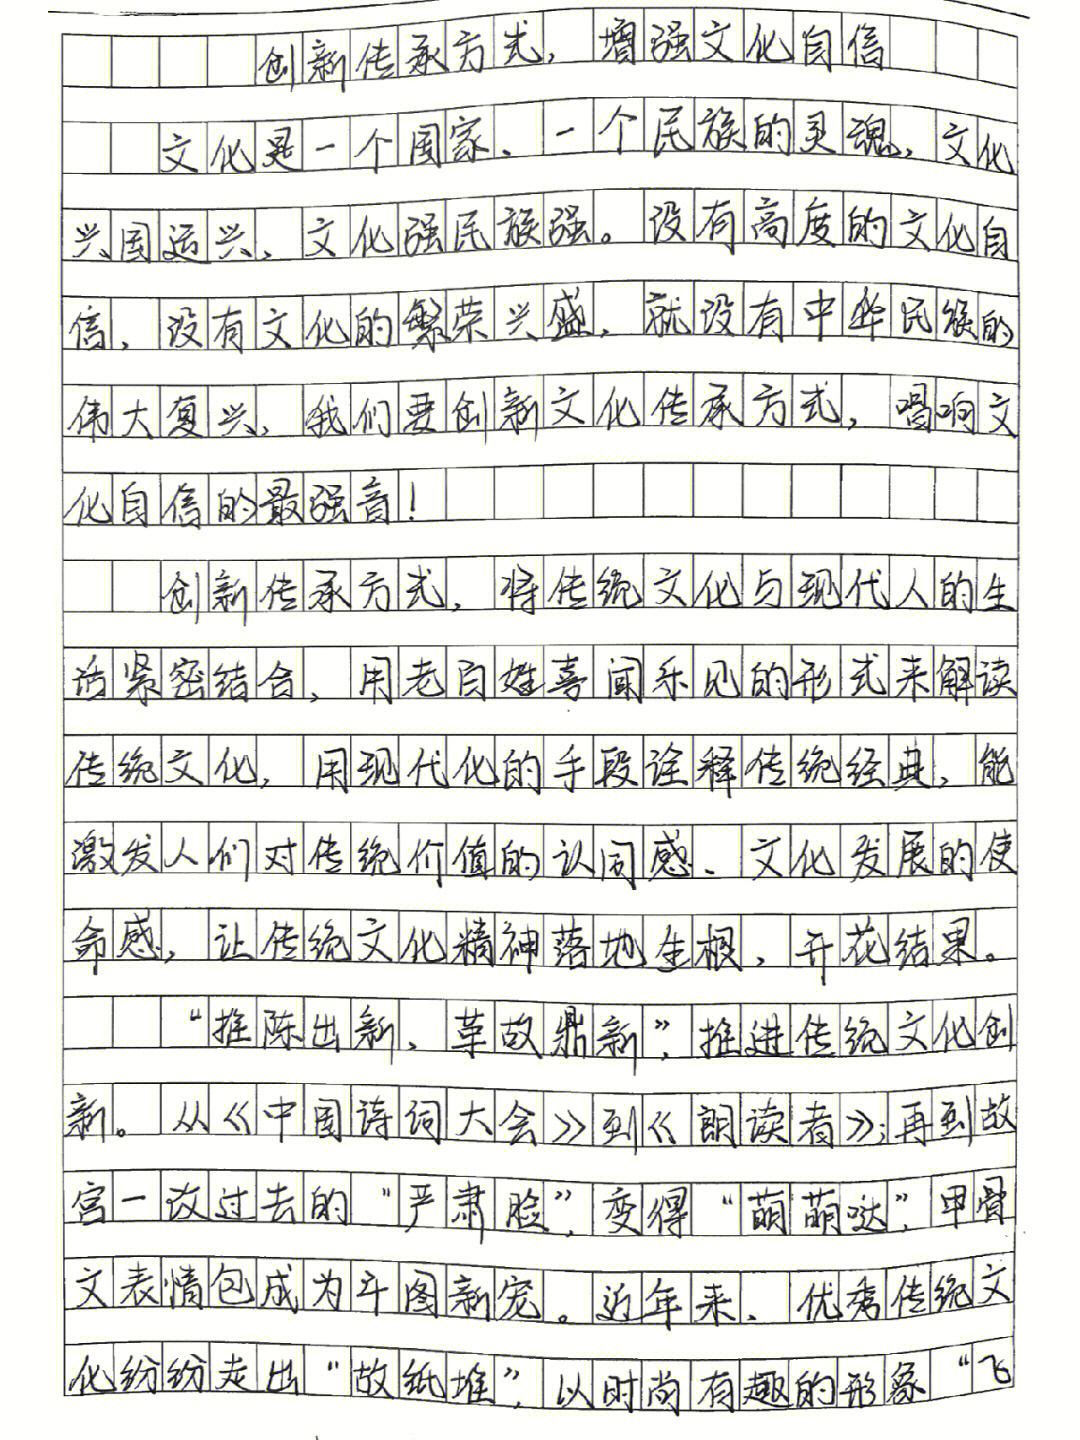 创新传承方式，增强文化自信
文化是一个国家、一个民族的灵魂，文化
兴国运兴，文化强民族强。没有高度的文化自
信，没有文化的繁荣兴盛，就没有中华民族的
伟大复兴，我们要创新文化传承方式，唱响文
化自信的最强音！
创新传承方式，将传统文化与现代人的生
活紧密结合，用老百姓喜闻乐见的形式来解读
传统文化，用现代化的手段诠释传统经典，能
激发人们对传统价值的认同感、文化发展的使
命感，让传统文化精神落地生根，开花结果。
“推陈出新，革故鼎新”，推进传统文化创
新。从《中国诗词大会》到《朗读者》；再到故
宫一改过去的“严肃脸”，变得“萌萌哒”，甲骨
文表情包成为斗图新宠。近年来，优秀传统文
化纷纷走出“故纸堆”，以时尚有趣的形象“飞